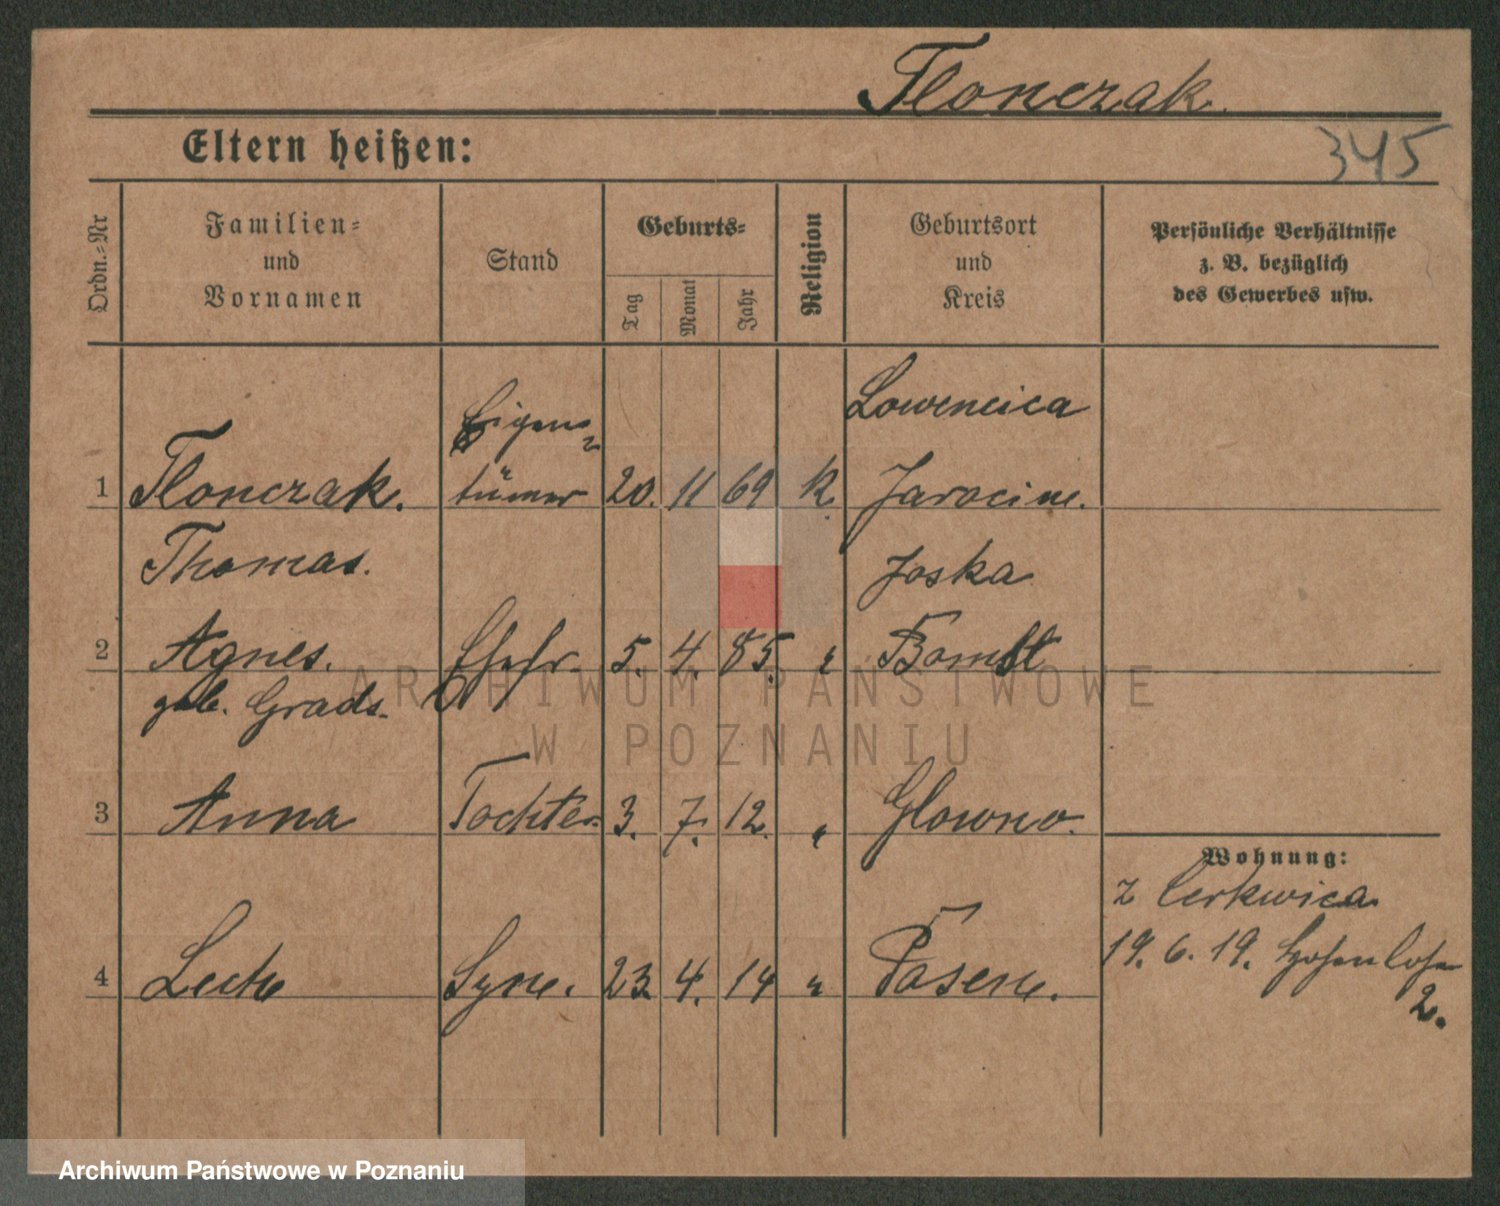 Tlonczak.
345
Eltern heißen:
Ordn.=Nr
Familien=
und
Vornamen
Stand
Geburts=
Tag
Monat
Jahr
Religion
Geburtsort
und
Kreis
Persönliche Verhältnisse
z. B. bezüglich
des Gewerbes usw.
Eigen=
Lowencica
1 Tlonczak. tümer 20. 11 69 K. Jarocine.
Thomas.
Joska
2 Agnes. Ehefr. 5. 4. 85. " Bomst
geb. Grads.
3 Anna Tochter 3. 7. 12. " Glowno.
Wohnung:
z Cerkwica
19. 6. 19. Hohenlohe
2.
4 Lech Syne. 23 4. 14 " Posene.
ARCHIWUM PAŃSTWOWE
W POZNANIU
Archiwum Państwowe w Poznaniu